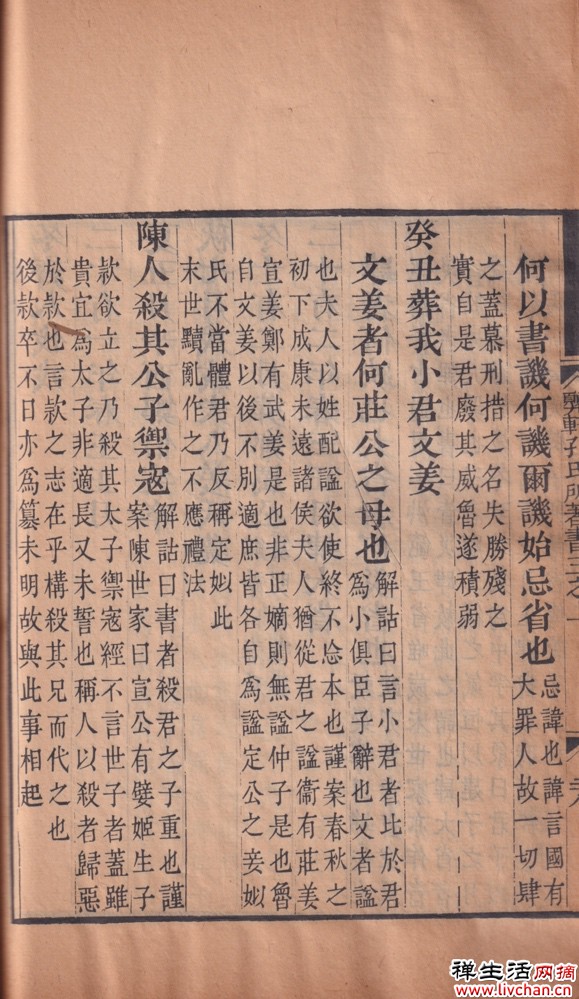 軒孔氏所著書三之一
何以書譏何譏爾譏始忌省也
忌諱也諱言國有
大罪人故一切肆
之蓋慕刑措之名失勝殘之
實自是君廢其威魯遂積弱
癸丑葬我小君文姜
文姜者何莊公之母也
解詁曰言小君者比於君
爲小俱臣子辭也文者諡
也夫人以姓配諡欲使終不忘本也謹案春秋之
初下成康未遠諸侯夫人猶從君之諡衞有莊姜
宣姜鄭有武姜是也非正嫡則無諡仲子是也魯
自文姜以後不別適庶皆各自爲諡定公之妾姒
氏不當體君乃反稱定姒此
末世黷亂作之不應禮法
陳人殺其公子禦寇
解詁曰書者殺君之子重也謹
案陳世家曰宣公有嬖姬生子
款欲立之乃殺其太子禦寇經不言世子者蓋雖
貴宜爲太子非適長又未誓也稱人以殺者歸惡
於款也言款之志在乎構殺其兄而代之也
後款卒不日亦爲篡未明故與此事相起
禅生活网摘
www.livchan.cn